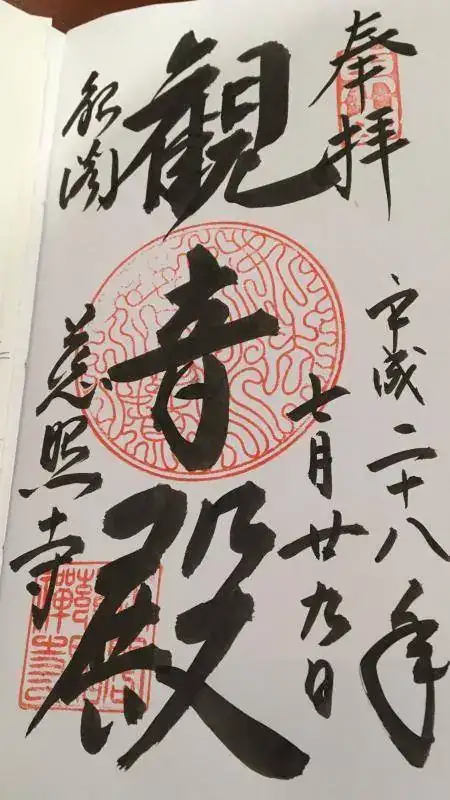 奉拝
平成二十八年
七月廿九日
観音殿
銀閣
慈照寺